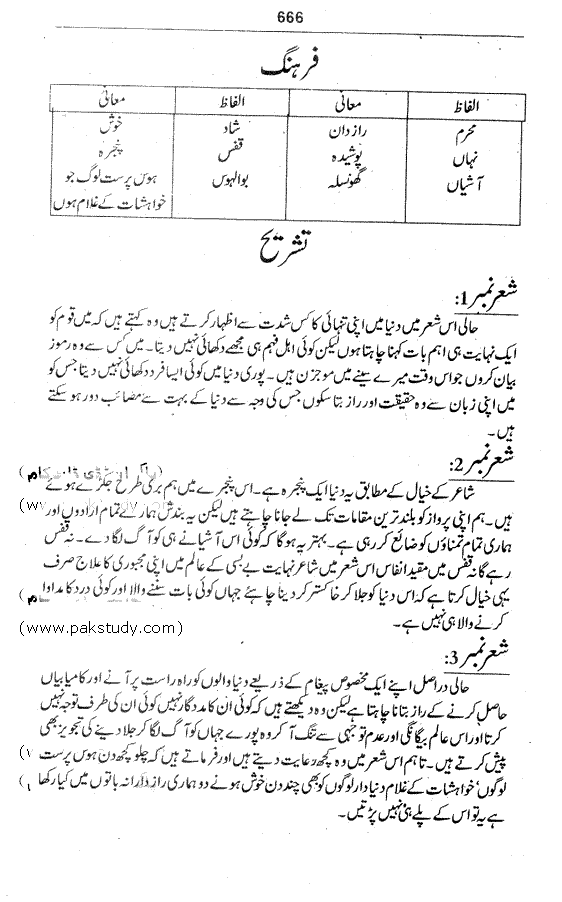 666
فرہنگ
الفاظ معانی الفاظ معانی
محرم رازدان شاد خوش
نہاں پوشیدہ قفس پنجرہ
آشیاں گھونسلہ بوالہوس ہوس پرست لوگ جو
خواہشات کے غلام ہوں
تشریح
شعر نمبر 1:
حالی اس شعر میں دنیا میں اپنی تنہائی کا کس شدت سے اظہار کرتے ہیں وہ کہتے ہیں کہ میں قوم کو
ایک نہایت ہی اہم بات کہنا چاہتا ہوں لیکن کوئی اہل فہم ہی مجھے دکھائی نہیں دیتا۔ میں کس سے وہ رموز
بیان کروں جو اس وقت میرے سینے میں موجزن ہیں۔ پوری دنیا میں کوئی ایسا فرد دکھائی نہیں دیتا جس کو
میں اپنی زبان سے وہ حقیقت اور راز بتا سکوں جس کی وجہ سے دنیا کے بہت سے مصائب دور ہو سکتے
ہیں۔
شعر نمبر 2:
شاعر کے خیال کے مطابق یہ دنیا ایک پنجرہ ہے۔ اس پنجرے میں ہم بری طرح جکڑے ہوئے
ہیں۔ ہم اپنی پرواز کو بلند ترین مقامات تک لے جانا چاہتے ہیں لیکن یہ بندش ہمارے تمام ارادوں اور
ہماری تمام تمناؤں کو ضائع کر رہی ہے۔ بہتر یہ ہو گا کہ کوئی اس آشیانے ہی کو آگ لگا دے۔ نہ قفس
رہے گا نہ قفس میں مقید انفاس اس شعر میں شاعر نہایت بے بسی کے عالم میں اپنی مجبوری کا علاج صرف
یہی خیال کرتا ہے کہ اس دنیا کو جلا کر خاکستر کر دینا چاہئے جہاں کوئی بات سننے والا اور کوئی درد کا مداوا
کرنے والا ہی نہیں ہے۔
(www.pakstudy.com)
شعر نمبر 3:
حالی دراصل اپنے ایک مخصوص پیغام کے ذریعے دنیا والوں کو راہ راست پر آنے اور کامیابیاں
حاصل کرنے کے راز بتانا چاہتا ہے لیکن وہ دیکھتے ہیں کہ کوئی ان کا مددگار نہیں کوئی ان کی طرف توجہ نہیں
کرتا اور اس عالم بیگانگی اور عدم توجہی سے تنگ آ کر وہ پورے جہاں کو آگ لگا کر جلا دینے کی تجویز بھی
پیش کرتے ہیں۔ تاہم اس شعر میں وہ کچھ رعایت دیتے ہیں اور فرماتے ہیں کہ چلو کچھ دن ہوس پرست
لوگوں' خواہشات کے غلام دنیا دار لوگوں کو بھی چند دن خوش ہونے دو ہماری رازدارانہ باتوں میں کیا رکھا
ہے یہ تو اس کے پلے ہی نہیں پڑتیں۔